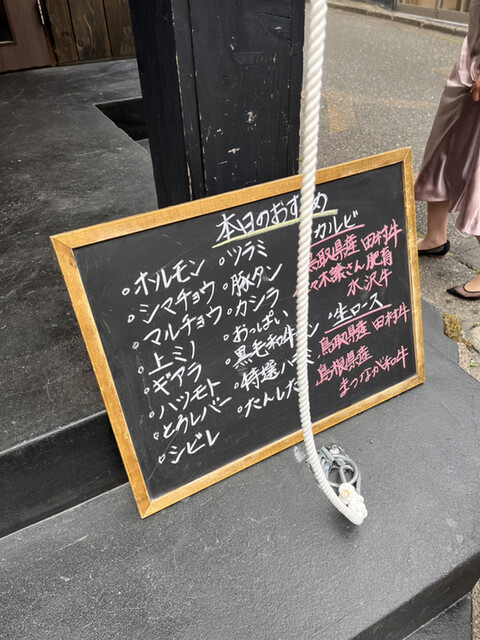 本日のおすすめ
。ホルモン
。シマチョウ
。マルチョウ
。上ミノ
。ギアラ
。ハツモト
。とろレバー
。シビレ
・ツラミ
・豚タン
・カシラ
・おっぱい
・黒毛和牛タン
・特選ハラミ
・たんした
カルビ
鳥取県産 田村牛
々木譲さん肥育
水沢牛
・生ロース
鳥取県産 田村牛
島根県産
まつなが和牛